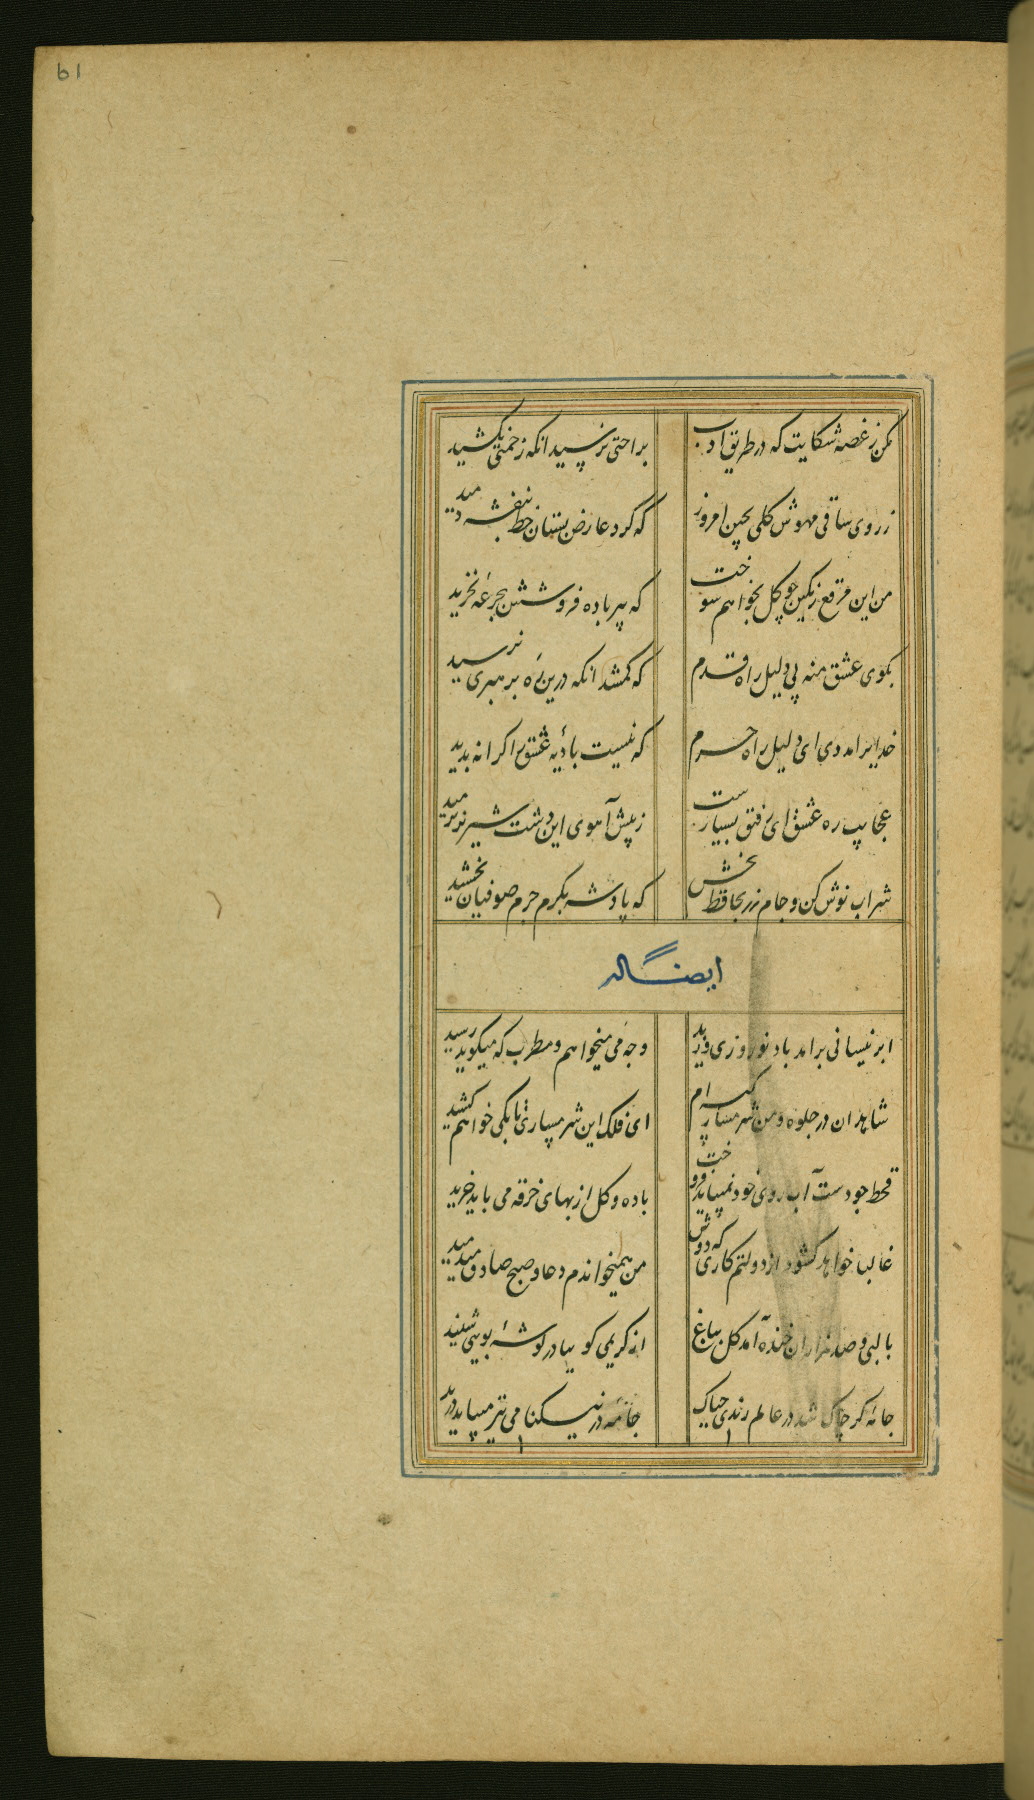 61
مکن ز غصه شکایت که در طریق ادب
براحتی نرسید انکه زخمتی نکشید
ز روی ساقی مهوش کلی بچین امروز
که کرد عارض بستان خط بنفشه دمید
من این مرقع رنکین چو کل بخواهم سوخت
که پیر باده فروشش بجرعه نخرید
بکوی عشق منه بی دلیل راه قدم
که کمشد انکه درین ره برهبری نرسید
خدایرا مددی ای دلیل راه حرم
که نیست بادیه عشق را کرانه بدید
عجایب ره عشق ای رفیق بسیارست
ز پیش آهوی این دشت شیر نر برمید
شراب نوش کن و جام زر بحافظ بخش
که پادشه بکرم جرم صوفیان بخشید
ایضاله
ابر نیسانی برامد باد نوروزی وزید
وجه می میخواهم و مطرب که میکوید رسید
شاهدان در جلوه و من شرمسار کیسه ام
ای فلک این شرمساری تا بکی خواهم کشید
قحط جودست آب روی خود نمیباید فروخت
باده و کل از بهای خرقه می باید خرید
غالبا خواهد کشود از دولتم کاری که دوش
من همیخواندم دعا و صبح صادق میدمید
با لبی و صد هزاران خنده آمد کل بباغ
از کریمی کوییا در کوشه بویی شنید
جامه کر چاک شد در عالم رندی چه باک
جامه در نیکنامی نیز میباید درید